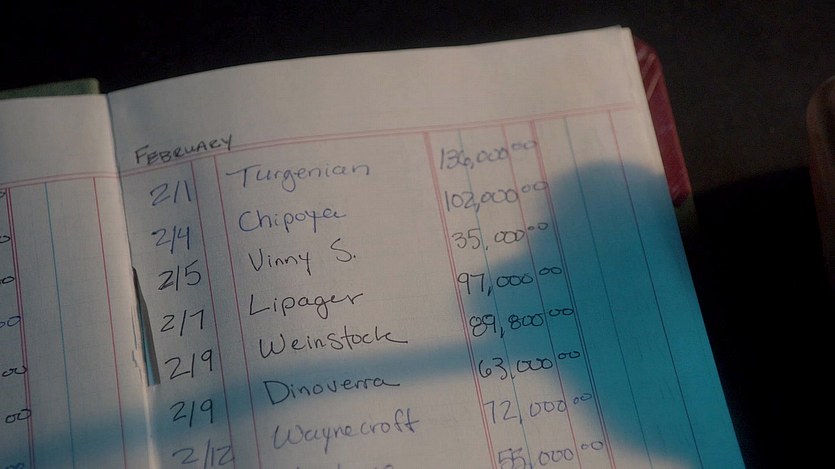 FEBRUARY
2/1 Turgenian 136,000.00
2/4 Chipoyer 102,000.00
2/5 Vinny S. 35,000.00
2/7 Lipager 97,000.00
2/9 Weinstock 89,800.00
2/9 Dinoverra 63,000.00
2/12 Waynecroft 72,000.00
55,000.00